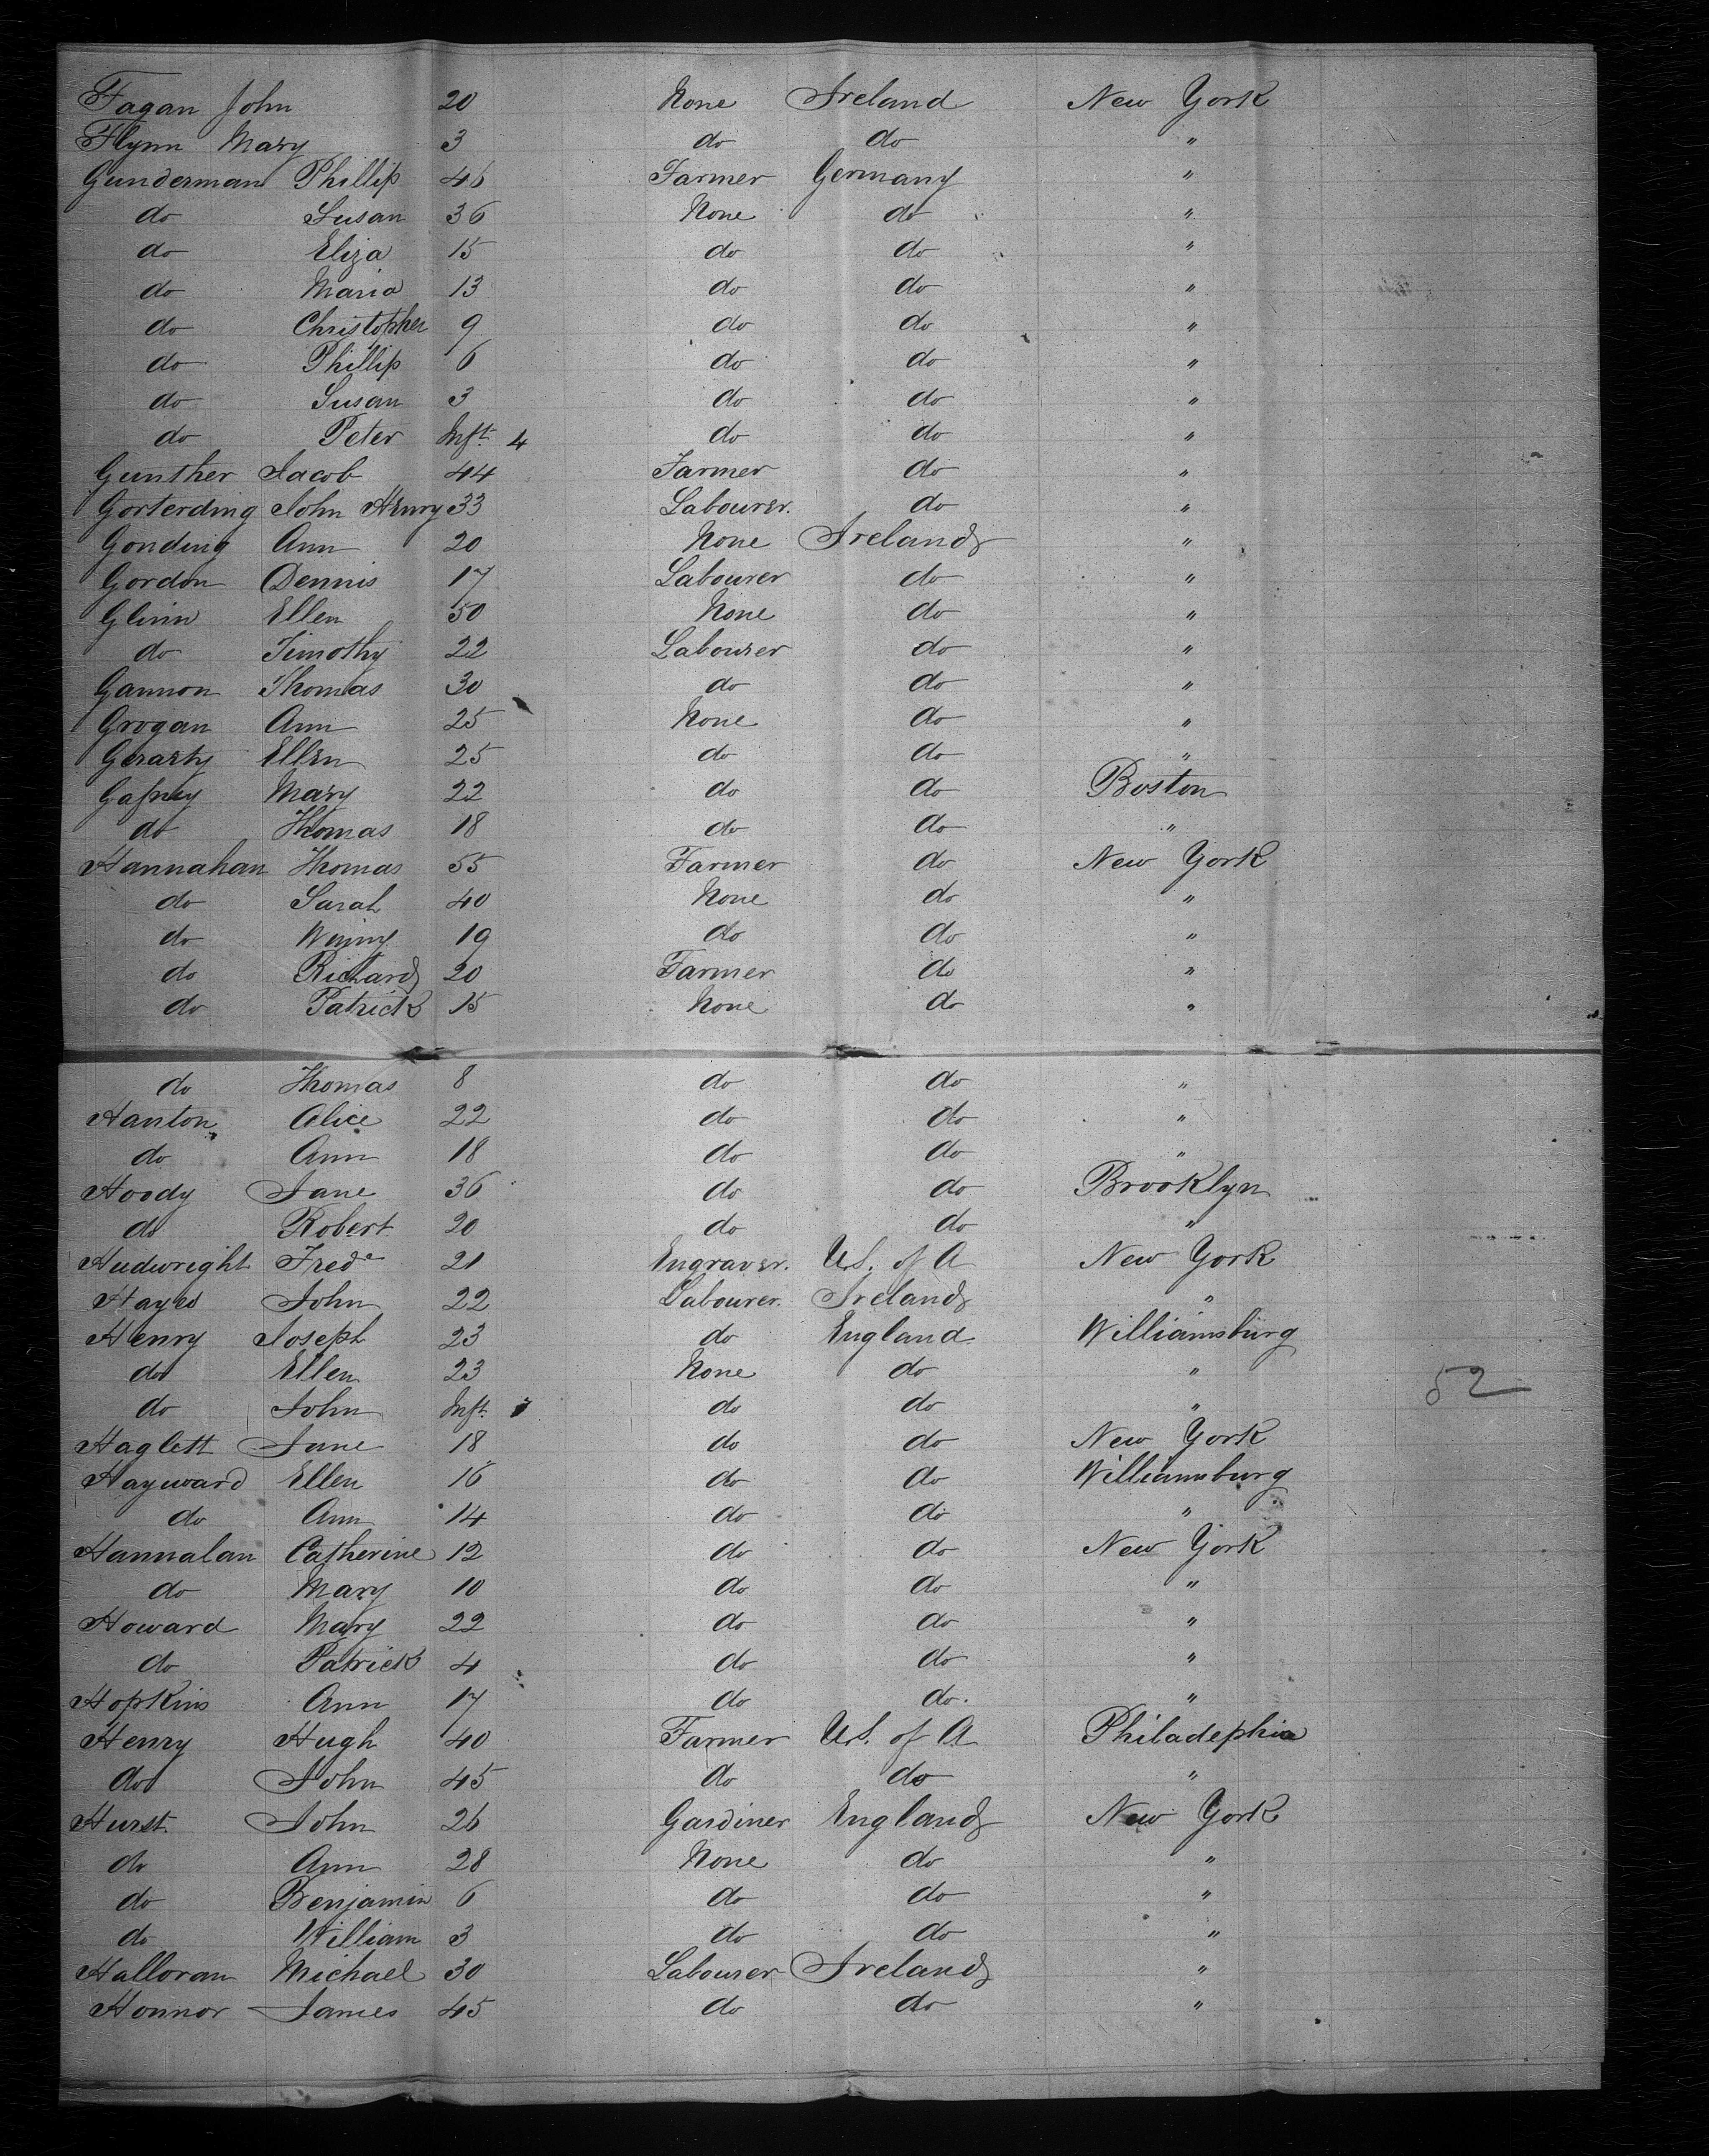 Fagan John 20 None Ireland New York
Flynn Mary 3 do do "
Gunderman Phillip 46 Farmer Germany "
do Susan 36 None do "
do Eliza 15 do do "
do Maria 13 do do "
do Christopher 9 do do "
do Phillip 6 do do "
do Susan 3 do do "
do Peter Inft. 4 do do "
Gunther Jacob 44 Farmer do "
Gorterding John Henry 33 Labourer. do "
Gonding Ann 20 None Ireland "
Gordon Dennis 17 Labourer do "
Glinn Ellen 50 None do "
do Timothy 22 Labourer do "
Gannon Thomas 30 do do "
Grogan Ann 25 None do "
Gerarty Ellen 25 do do "
Gafney Mary 22 do do Boston
do Thomas 18 do do "
Hannahan Thomas 55 Farmer do New York
do Sarah 40 None do "
do Winny 19 do do "
do Richard 20 Farmer do "
do Patrick 15 None do "
do Thomas 8 do do "
Hanton Alice 22 do do "
do Ann 18 do do "
Hoody Jane 36 do do Brooklyn
do Robert 20 do do "
Hudwright Fredc 21 Engraver. U.S. of A New York
Hayes John 22 Labourer. Ireland "
Henry Joseph 23 do England Williamsburg
do Ellen 23 None do "
do John Inft. do do "
Haglett Jane 18 do do New York
Hayward Ellen 16 do do Williamsburg
do Ann 14 do do "
Hannalan Catherine 12 do do New York
do Mary 10 do do "
Howard Mary 22 do do "
do Patrick 4 do do "
Hopkins Ann 17 do do. "
Henry Hugh 40 Farmer U.S. of A Philadephia
do John 45 do do "
Hurst. John 26 Gardiner England New York
do Ann 28 None do "
do Benjamin 6 do do "
do William 3 do do "
Halloran Michael 30 Labourer Ireland "
Honnor James 45 do do "
52